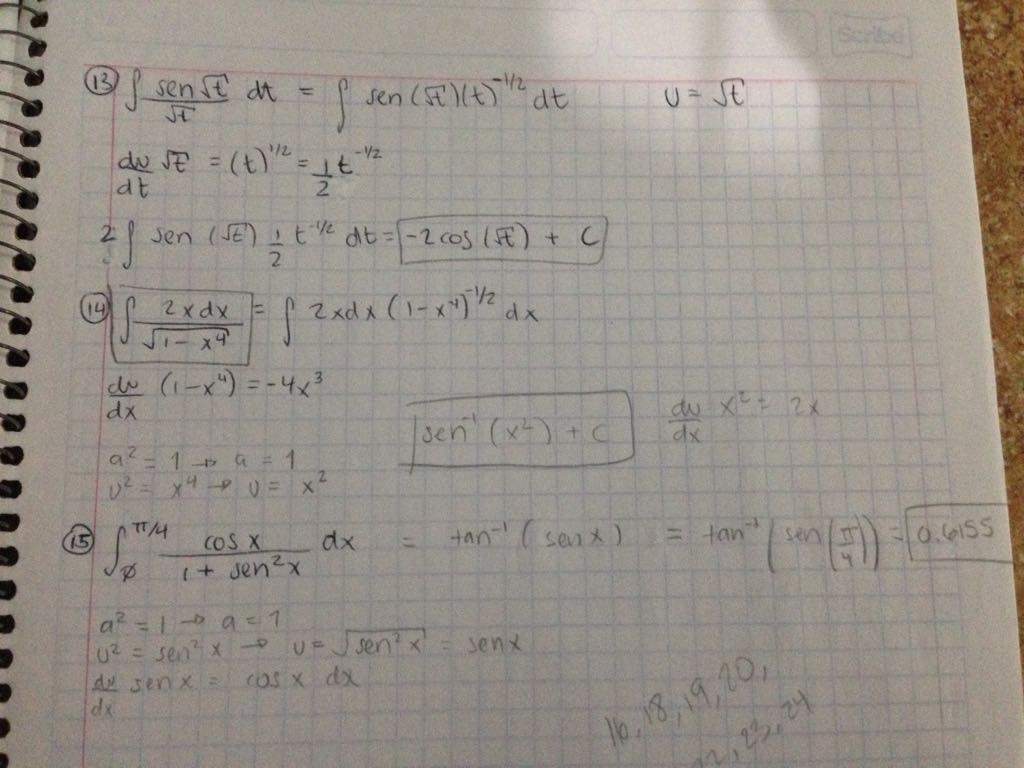 Scribe
⑬ ∫ sen√t/√t dt = ∫ sen(√t)(t)^-1/2 dt u = √t
du/dt √t = (t)^1/2 = 1/2 t^-1/2
2 ∫ sen (√t) 1/2 t^-1/2 dt = -2cos(√t) + C
⑭ ∫ 2xdx/√(1-x^4) = ∫ 2xdx (1-x^4)^-1/2 dx
du/dx (1-x^4) = -4x^3
sen^-1 (x^2) + C du/dx x^2 = 2x
a^2 = 1 → a = 1
u^2 = x^4 → u = x^2
⑮ ∫_0^π/4 cos x/(1 + sen^2 x) dx = tan^-1 (sen x) = tan^-1 (sen (π/4)) = 0.6155
a^2 = 1 → a = 1
u^2 = sen^2 x → u = √(sen^2 x) = senx
du/dx sen x = cos x dx
16, 18, 19, 20,
23, 24